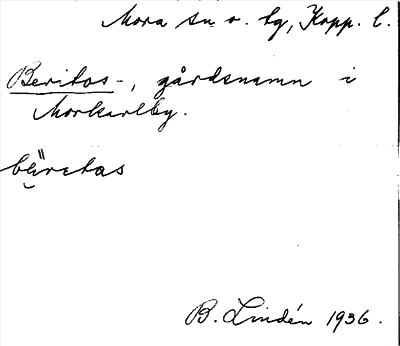 Mora sn o. hg, Kopp. l.
Beritos-, gårdsnamn i
Morkarlby.
B. Lindén 1936.